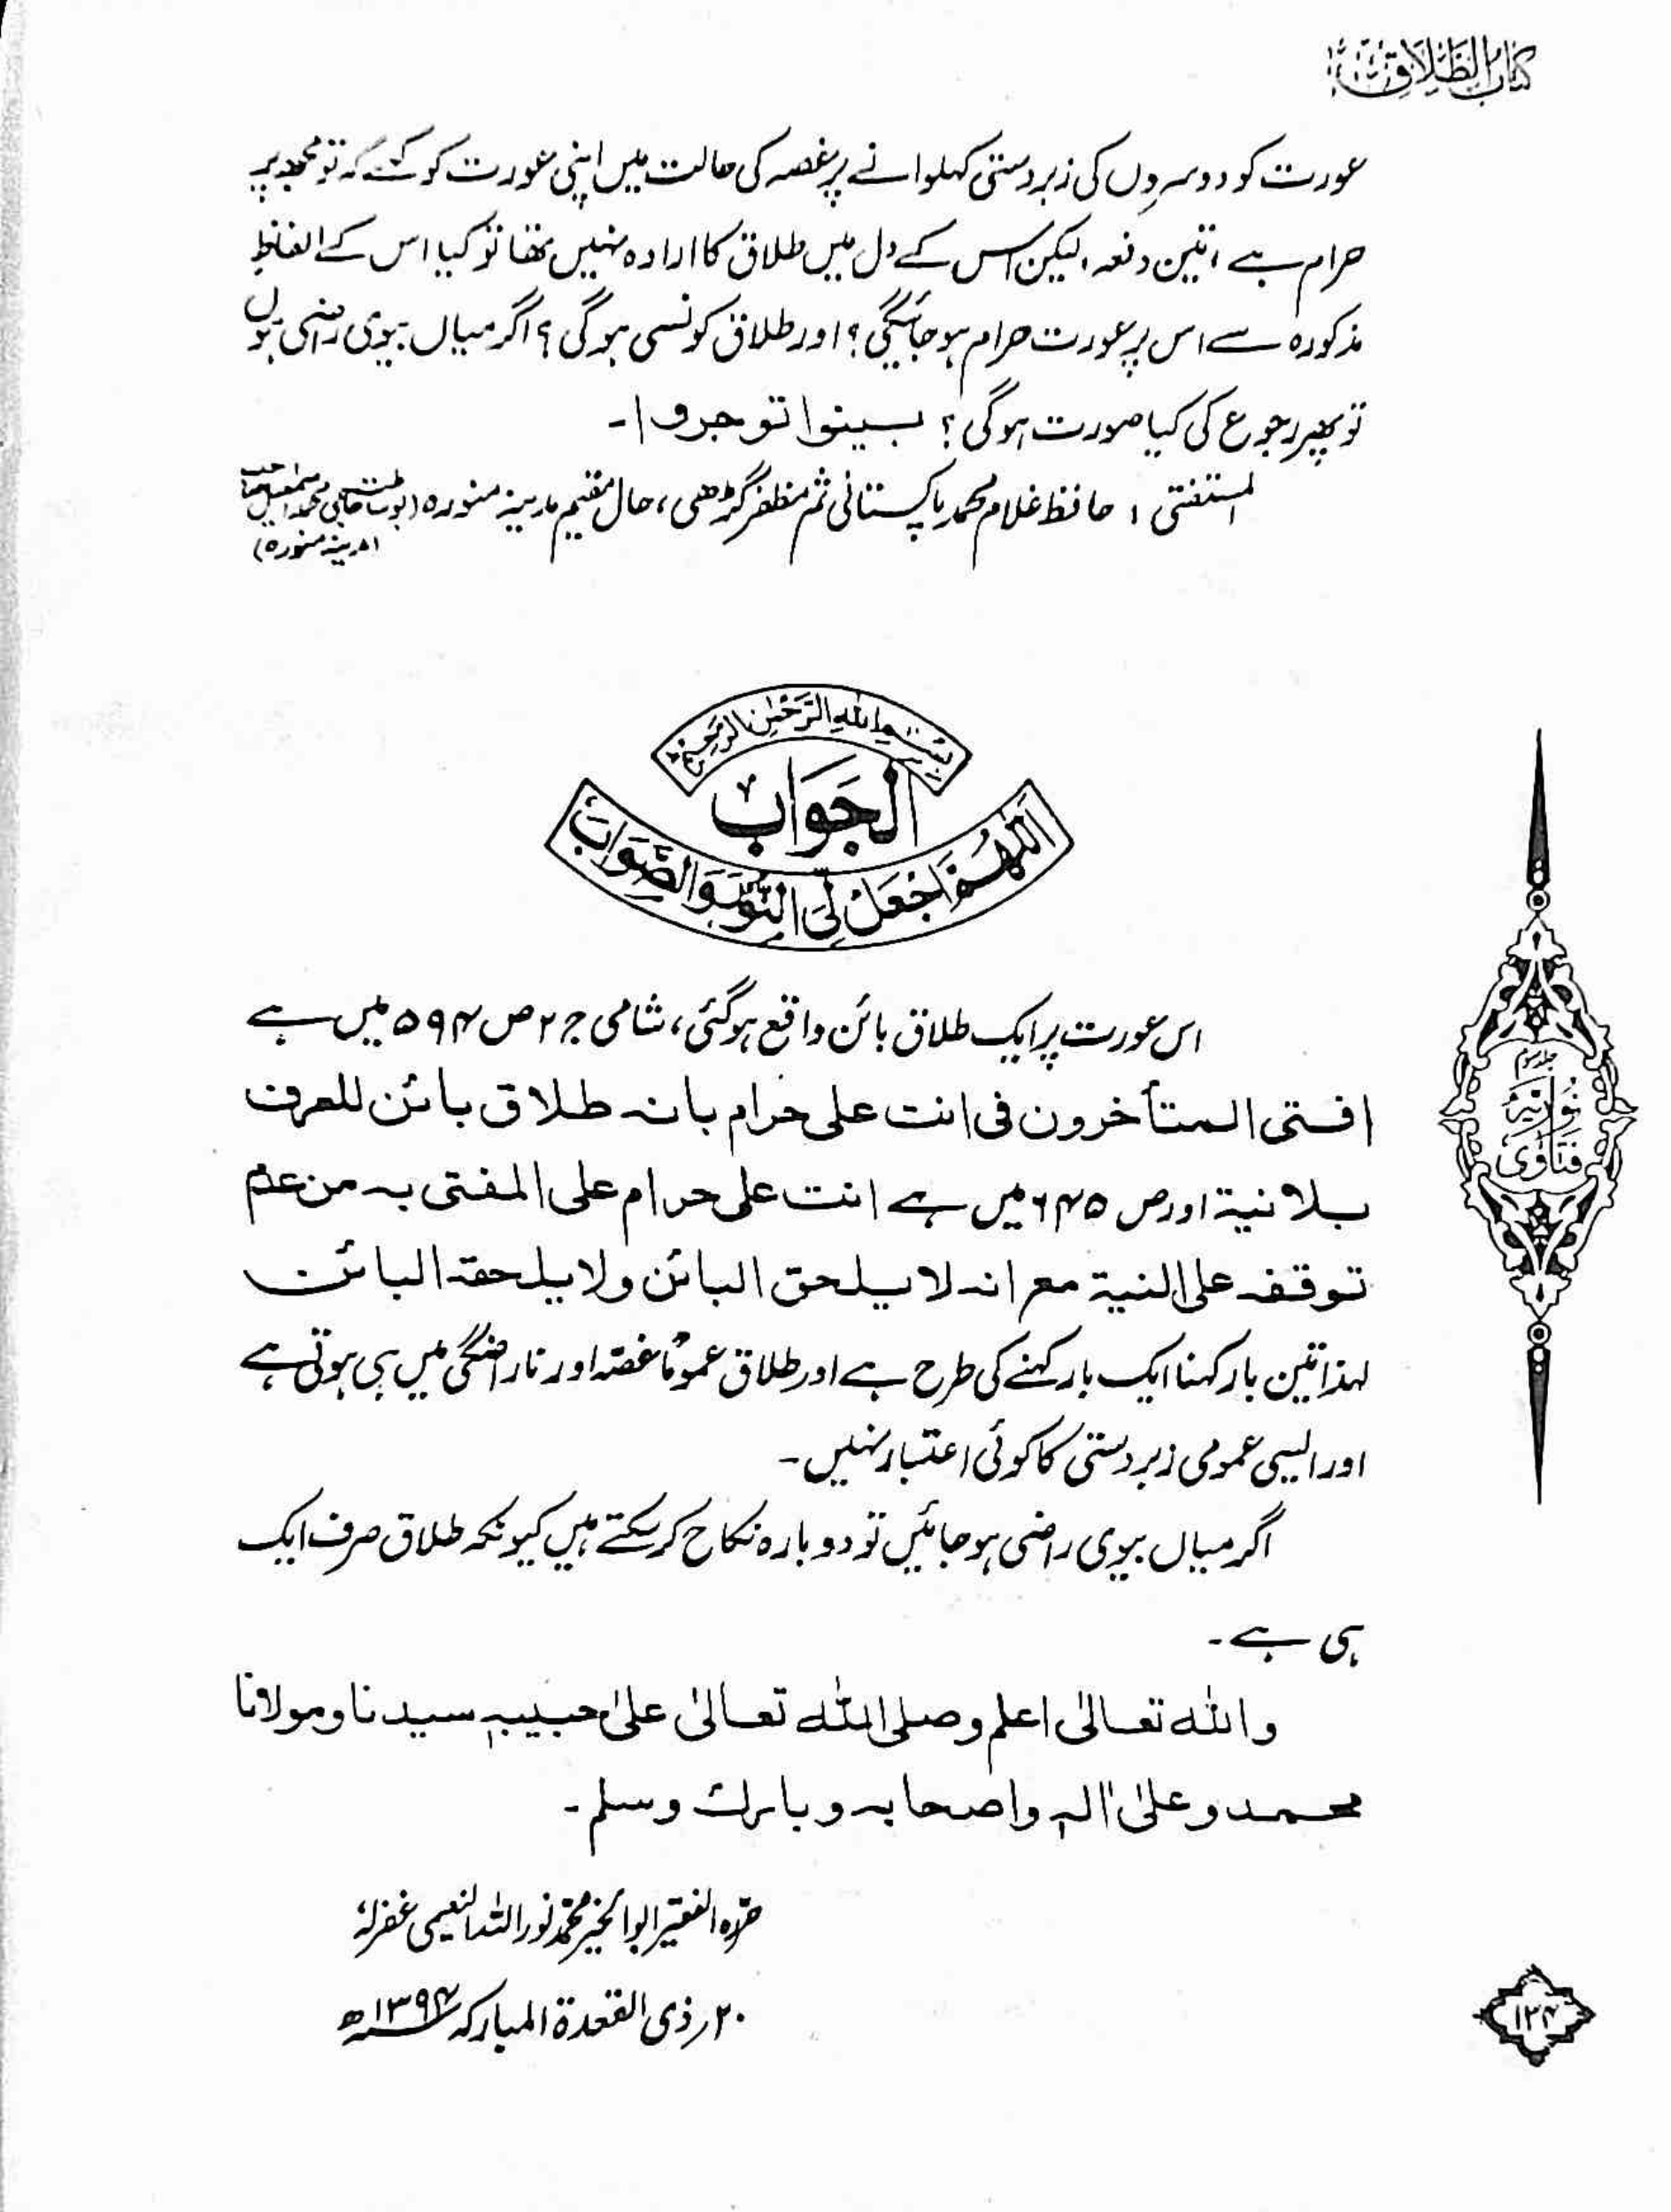 كتاب الطلاق
عورت کو دوسروں کی زبردستی کہلوانے پر غصہ کی حالت میں اپنی عورت کو کہے کہ تو مجھ پر
حرام ہے، تین دفعہ، لیکن اس کے دل میں طلاق کا ارادہ نہیں تھا تو کیا اس کے الفاظ
مذکورہ سے اس پر عورت حرام ہو جائیگی؟ اور طلاق کونسی ہوگی؟ اگر میاں بیوی راضی ہوں
تو پھر رجوع کی کیا صورت ہوگی؟ بینوا توجروا۔
المستفتی: حافظ غلام محمد پاکستانی ثم مظفر گڑھی، حال مقیم مدینہ منورہ (بوساطت حاجی محمد اسمٰعیل صاحب
(مدینہ منورہ)
بِسْمِ اللهِ الرَّحْمٰنِ الرَّحِيْمِ
الْجَوَابُ
اَللّٰهُمَّ اجْعَلْ لِّىَ النُّوْرَ وَالصَّوَابَ
اس عورت پر ایک طلاق بائن واقع ہوگئی، شامی ج ۲ ص ۵۹۴ میں ہے
افتى المتأخرون فى انت على حرام بانه طلاق بائن للعرف
بلانية اور ص ۶۴۵ میں ہے انت على حرام على المفتى به من عدم
توقفه على النية مع انه لا يلحق البائن ولا يلحقه البائن
لہذا تین بار کہنا ایک بار کہنے کی طرح ہے اور طلاق عموماً غصّہ اور ناراضگی میں ہی ہوتی ہے
اور ایسی عمومی زبردستی کا کوئی اعتبار نہیں۔
اگر میاں بیوی راضی ہو جائیں تو دوبارہ نکاح کر سکتے ہیں کیونکہ طلاق صرف ایک
ہی ہے۔
والله تعالىٰ اعلم وصلى الله تعالىٰ علىٰ حبيبه سيدنا ومولانا
محمد وعلىٰ اٰله واصحابه وبارك وسلم۔
حرّرہ الفقیر ابوالخیر محمّد نور اللہ النعیمی غفرلہٗ
۲۰؍ ذی القعدۃ المبارکہ ۱۳۹۴ھ
جلد سوم
نُوْرِیَّہ
فَتَاوٰی
۱۲۴